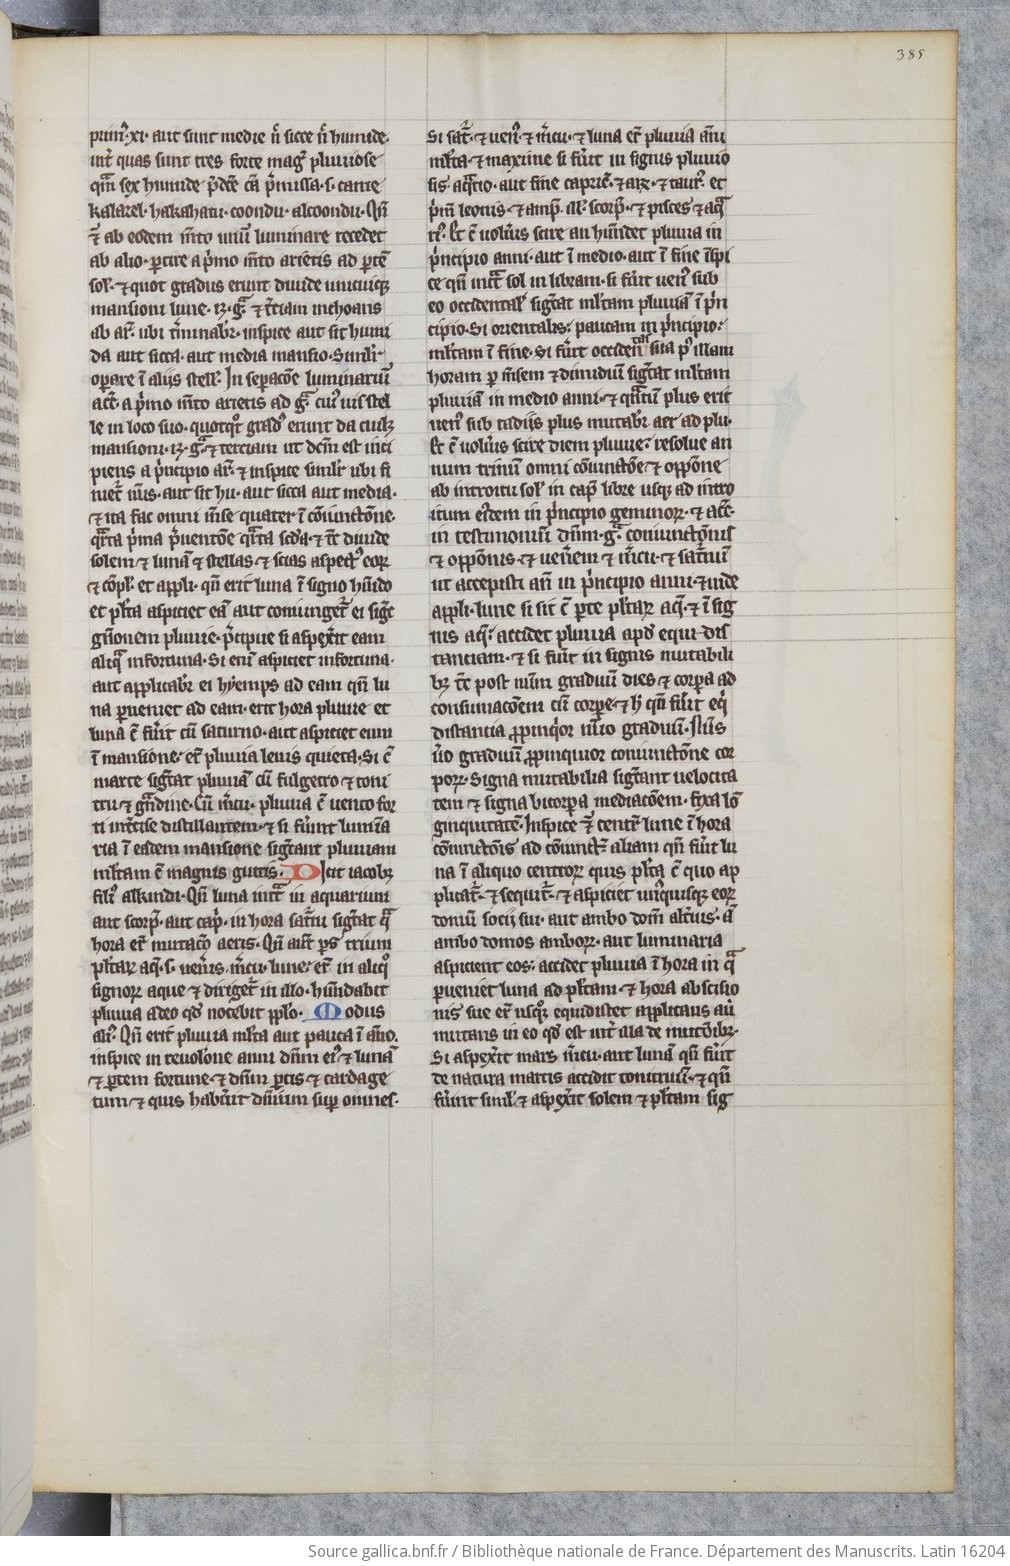 385
prim᷒·xi· aut sunt medie n̄ sicce n̄ humide·
int̄ quas sunt tres forte mag᷒ pluuiose
qm̄ sex humide p̄dc̄e cā p̄missa·s· tante
kalarel· hakahatu· coondu· alcoondu· Qn̄
ab eodem m̄ito unū luminare recedet
ab alio· ꝑtire a p̄mo m̄ito arietis ad ꝑtē
sol᷒·⁊ quot gradus erunt diuide unicuiqꝫ
mansioni lune· 12·g᷒· ⁊ t̄tiam inchoans
ab ar᷒· ubi t̄minabr̄· inspice aut sit humi
da aut sicca· aut media mansio· Silr̄
operare ī alijs stell᷒· In sep̄acōe luminariū
acc̄· a p̄mo m̄ito arietis ad g᷒ cui᷒ uis stel
le in loco suo· quotqꝫ grad᷒ erunt da cuilꝫ
mansioni·12·g᷒·⁊ terciam ut dcm̄ est inci
piens a p̄ncipio ar᷒·⁊ inspice silr̄ ubi fi
niet̄ nūs· aut sit hu· aut sicca aut media·
⁊ ita fac omni m̄se quater ī cōiunctōne·
q̄rta p̄ma p̄uentōe q̄rta scd̄a·⁊ tc̄ diuide
solem ⁊ lunā ⁊ stellas ⁊ scias aspect᷒ eoꝝ
⁊ cōpl᷒· et appli· qn̄ erit luna ī signo hūido
et pl̄ta aspiciet eā aut coniunget᷒ ei sigt̄
gn̄onem pluuie· p̄cipue si aspex̄it eam
aliq̄ infortuna· Si eni᷒ aspiciet infortuna·
aut applicabr̄ ei hyemps ad eam qn̄ lu
na ꝑueniet ad eam· erit hora pluuie et
luna c̄ fūit cū saturno· aut aspiciet eum
ī mansione· er̄ pluuia leuis quieta· Si c̄
marte sigt̄at pluuiā cū fulgetro ⁊ toni
tru ⁊ grādine· Cū m̄cu· pluuia c̄ uento for
ti int̄cise distillantem·⁊ si fūint luminā
ria ī eadem mansione sigt̄ant pluuiam
ml̄tam c̄ magnis guttis· Dicit iacobꝫ
fili᷒ alkindi· Qn̄ luna int̄t in aquarium
aut scorp᷒· aut cap᷒· in hora sat̄ni sigt̄at q̄
hora er̄ mutacō aeris· Qn̄ aut̄ ps᷒ trium
pl̄taꝝ aq̄·s· uen̄is· m̄cu· lune· er̄ in aliq᷒
signoꝝ aque ⁊ diriget̄ in illo· hūndabit
pluuia adeo qd᷒ nocebit pplo· Modus
ali᷒· Qn̄ erit pluuia ml̄ta aut pauca ī anō·
inspice in reuolōne anni dn̄m ei᷒ ⁊ lunā
⁊ ꝑtem fortune ⁊ dn̄m ꝑtis ⁊ cardage
tum ⁊ quis habūit dn̄ium suꝑ omnes·
Si sat̄·⁊ uen᷒·⁊ m̄cu·⁊ luna er̄ pluuia anī
ml̄ta·⁊ maxime si fūit in signis pluuio
sis aq̄rio· aut fine capric᷒·⁊ ar᷒·⁊ taur᷒· et
p̄m leonis·⁊ amp᷒· ill᷒· scorp᷒·⁊ pisces ⁊ aq̄
rī᷒· Et c̄ uolūis scire an hūndet pluuia in
p̄ncipio anni· aut ī medio· aut ī fine īspi
ce qn̄ int̄t sol in libram· si fūit uen᷒ sub
eo occidental᷒ sigt̄at ml̄tam pluuiā ī p̄n
cipio· Si orientalis· paucam in p̄ncipio·
ml̄tam ī fine· Si fūit occidentalis sua p᷒ illam
horam ꝑ m̄sem ⁊ dimidiū sigt̄at ml̄tam
pluuiā in medio anni·⁊ quātū plus erit
uen᷒ sub radijs plus mutabr̄ aer ad plu·
Et c̄ uolūis scire diem pluuie· resolue an
num trinū omni cōiunctōe ⁊ oppōne
ab introitu sol᷒ in cap᷒ libre usqꝫ ad intro
itum ei᷒dem in p̄ncipio geminoꝝ·⁊ acc̄·
in testimoniū dn̄m·g᷒· coniunctōnis
⁊ oppōnis·⁊ uen̄em ⁊ m̄cu·⁊ sat̄nū
ut accepisti an̄ in p̄ncipio anni·⁊ inde
appli· lune si sit c̄ ꝑte pl̄taꝝ aq̄·⁊ ī sig
nis aq̄· accidet pluuia apd᷒ equi dis
tanciam·⁊ si fūit in signis mutabili
bꝫ tc̄ post nūm graduū dies ⁊ corpa ad
consumacōem cū corꝑe·⁊ h᷒ qn̄ fūit eq̄
distancia ꝓpinq᷒or nūo graduū· Nūs
ūo graduū ꝓpinquior coniunctōne cor
poꝝ· Signa mutabilia sigt̄ant uelocita
tem ⁊ signa bicorpa mediacōem· fixa lō
ginquitatē· Inspice centr̄ lune ī hora
cōiunctōis ad cōiunct᷒ aliam qn̄ fūit lu
na ī aliquo centroꝝ quis pl̄ta c̄ quo ap
plicat̄·⁊ sequit̄·⁊ aspiciet un᷒quisqꝫ eoꝝ
domū socij sui· aut ambo dom᷒ alt̄ius· ā
ambo domos amboꝝ· aut luminaria
aspicient eos· accidet pluuia ī hora in q̄
ꝑueniet luna ad pl̄tam·⁊ hora abscisio
nis sue er̄ usqꝫ equidistet applicans aū
mutans in eo qd᷒ est int̄ illa de mutōibꝫ·
Si aspex̄it mars m̄cu· aut lunā qn̄ fūit
de natura martis accidit tonitruū·⁊ qn̄
fūint siml᷒ ⁊ aspex̄it solem ⁊ pl̄tam sig
Source gallica.bnf.fr / Bibliothèque nationale de France. Département des Manuscrits. Latin 16204